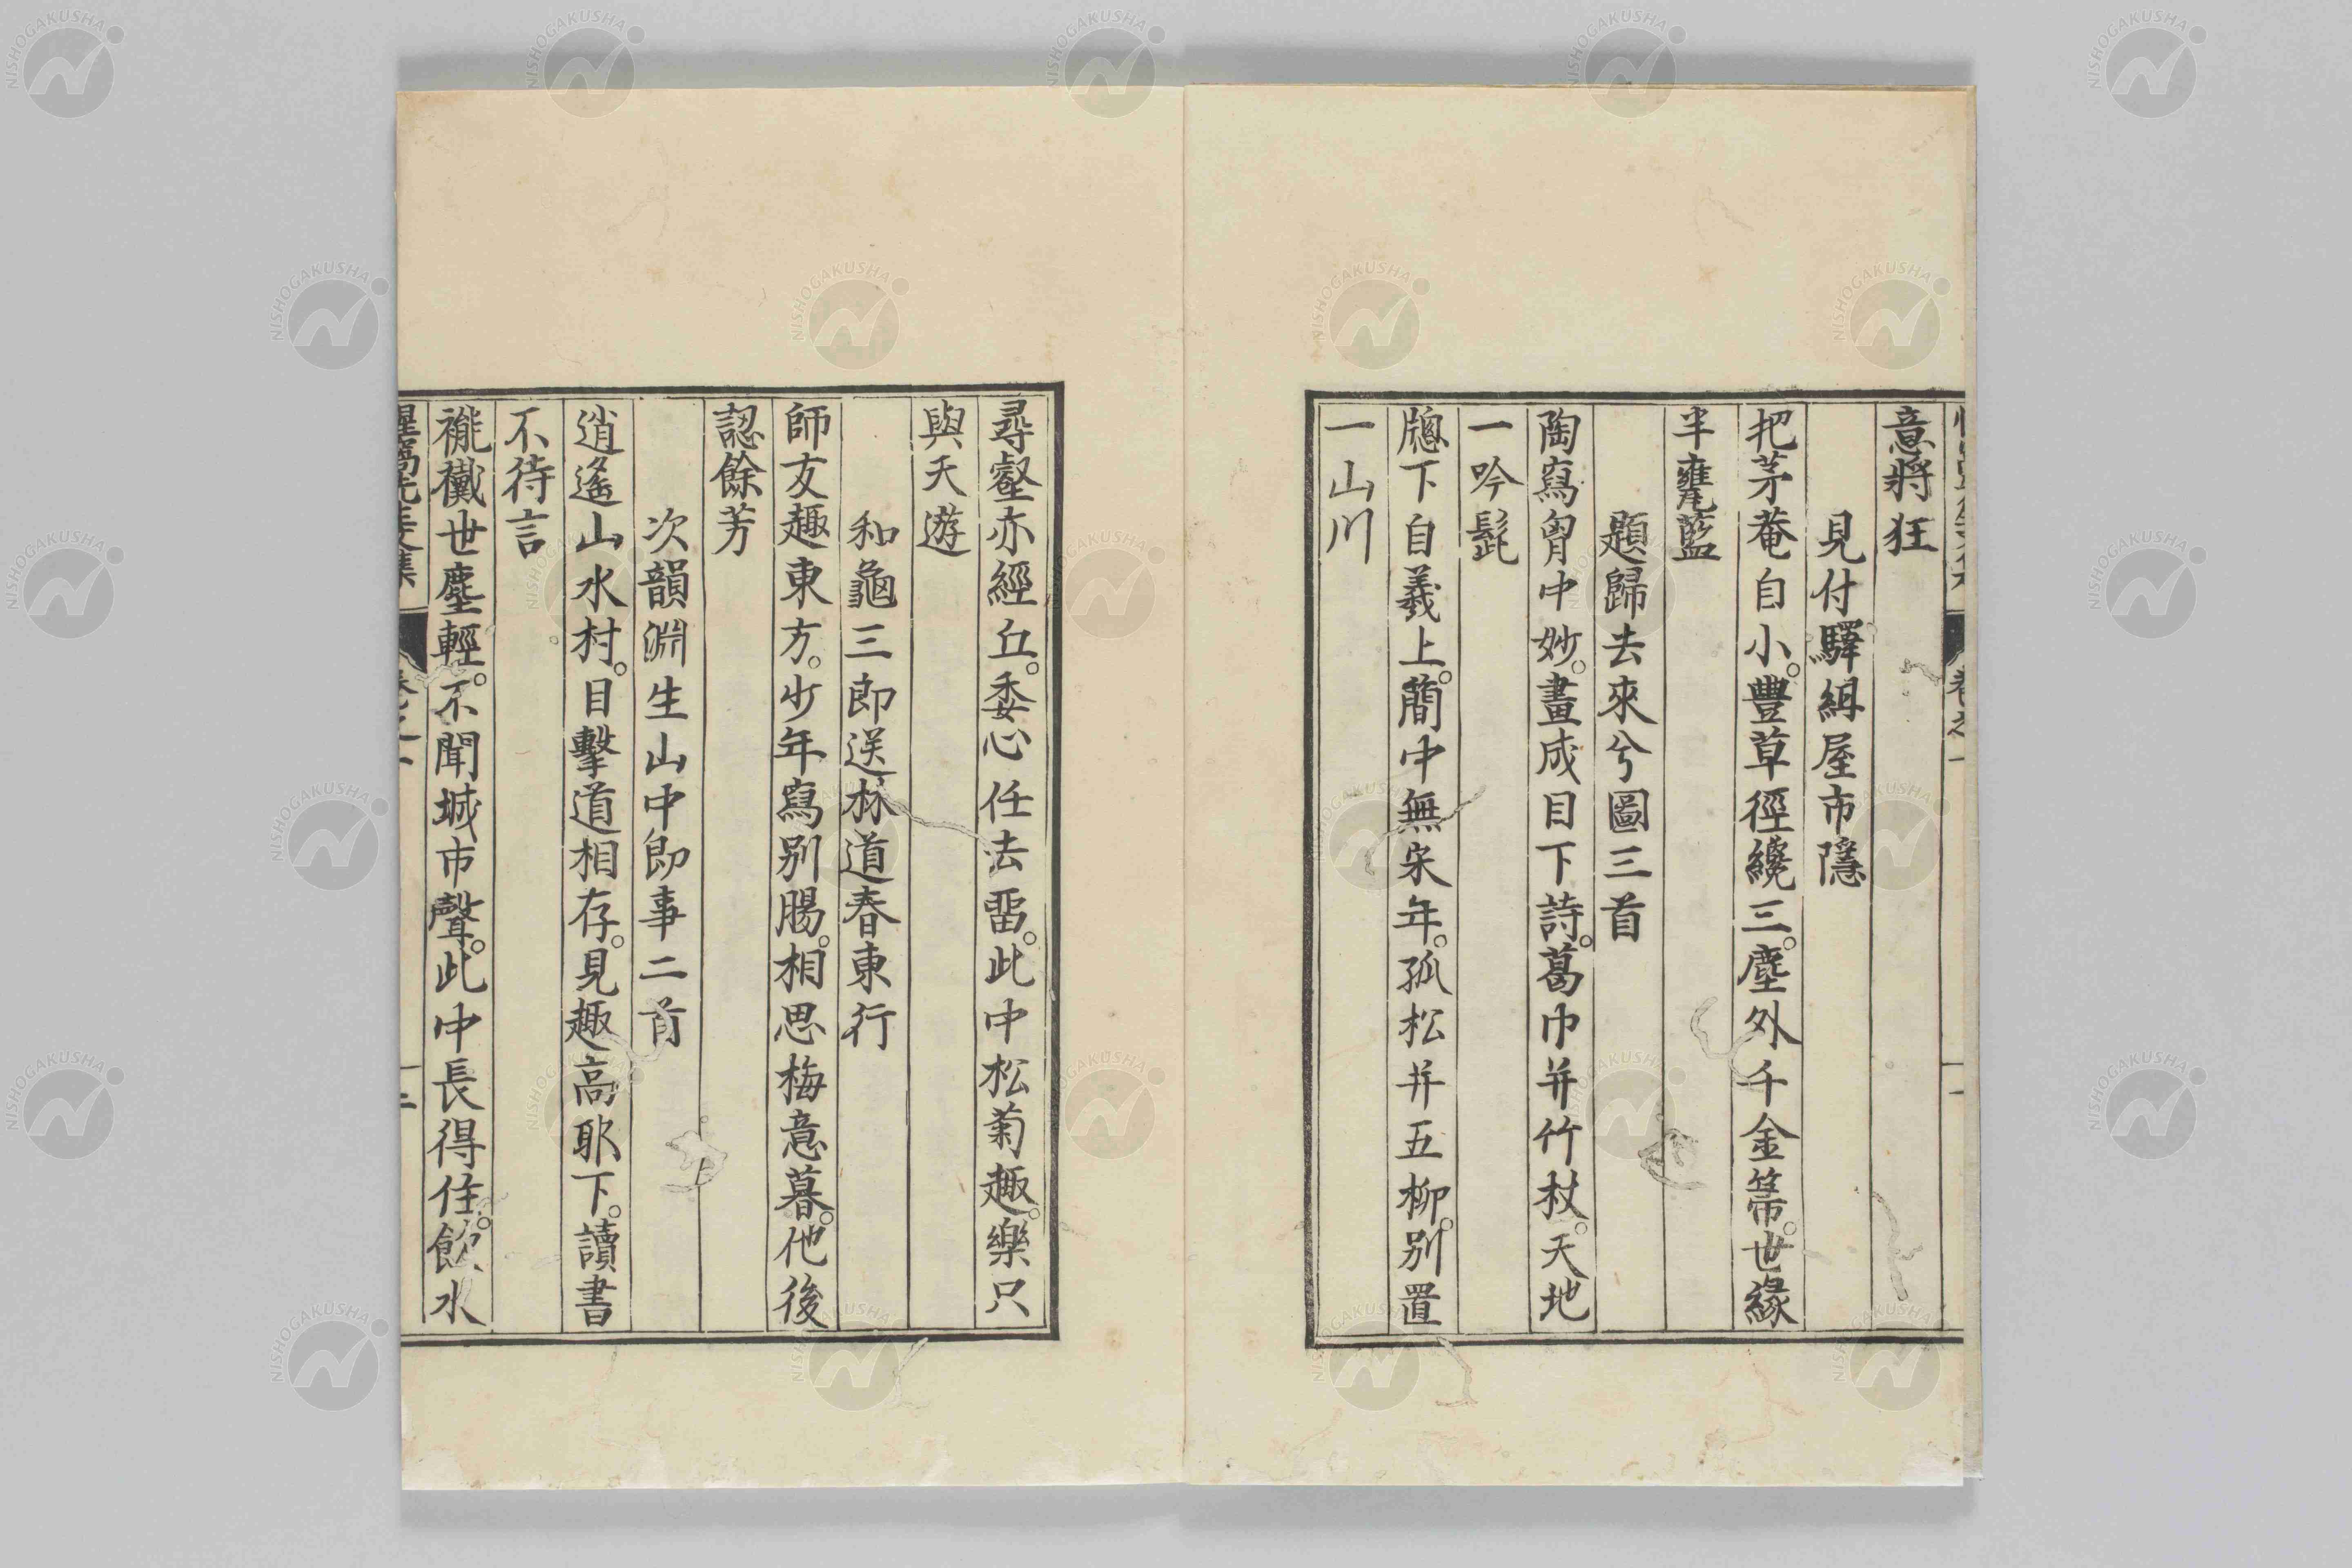 意將狂
見付驛緝屋市隱
把茅菴自小。豐草徑纔三。塵外千金箒。世緣
半甕藍
題歸去來兮圖三首
陶寫胷中妙。畫成目下詩。葛巾并竹杖。天地
一吟髭
牕下自羲上。蕳中無宋年。孤松并五柳。別置
一山川
尋壑亦經丘。委心任去畱。此中松菊趣。樂只
與天遊
和龜三郎送林道春東行
師友趣東方。少年寫別膓。相思梅意暮。他後
認餘芳
次韻淵生山中卽事二首
逍遙山水村。目擊道相存。見趣高耶下。讀書
不待言
褦襶世塵輕。不聞城市聲。此中長得住。飮水
惺窩先生文集 卷之一 十二
NISHOGAKUSHA